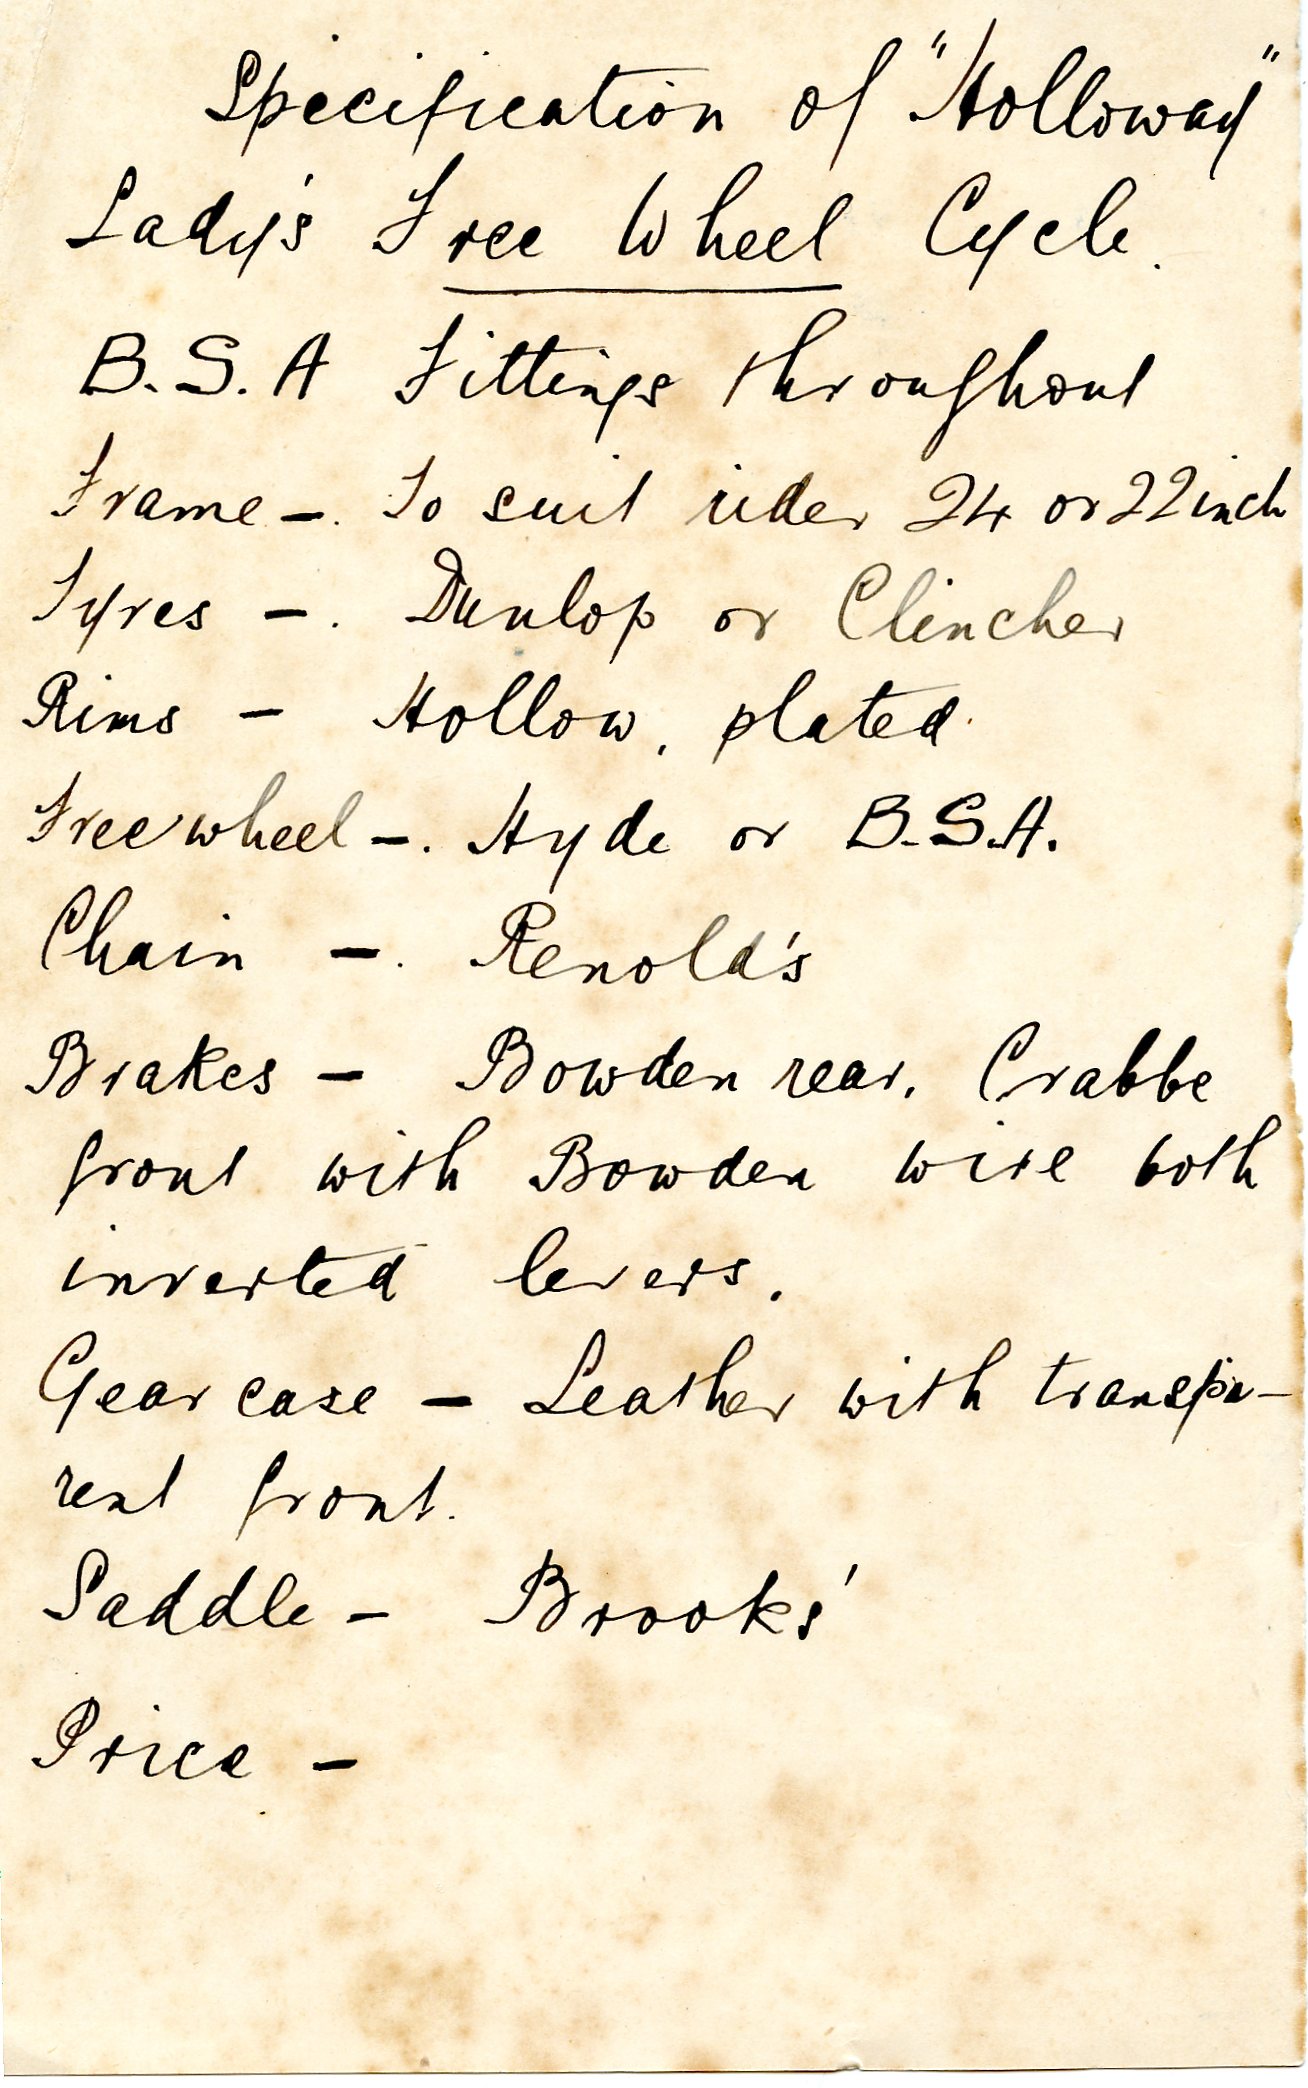 Specification of "Holloway"
Lady's Free Wheel Cycle.
B.S.A Fittings throughout
Frame -. To suit rider 24 or 22 inch
Tyres -. Dunlop or Clincher
Rims - Hollow, plated.
Freewheel -. Hyde or B.S.A.
Chain -. Renold's
Brakes - Bowden rear. Crabbe
front with Bowden wire both
inverted levers.
Gear case - Leather with transpa-
rent front.
Saddle - Brooks'
Price -